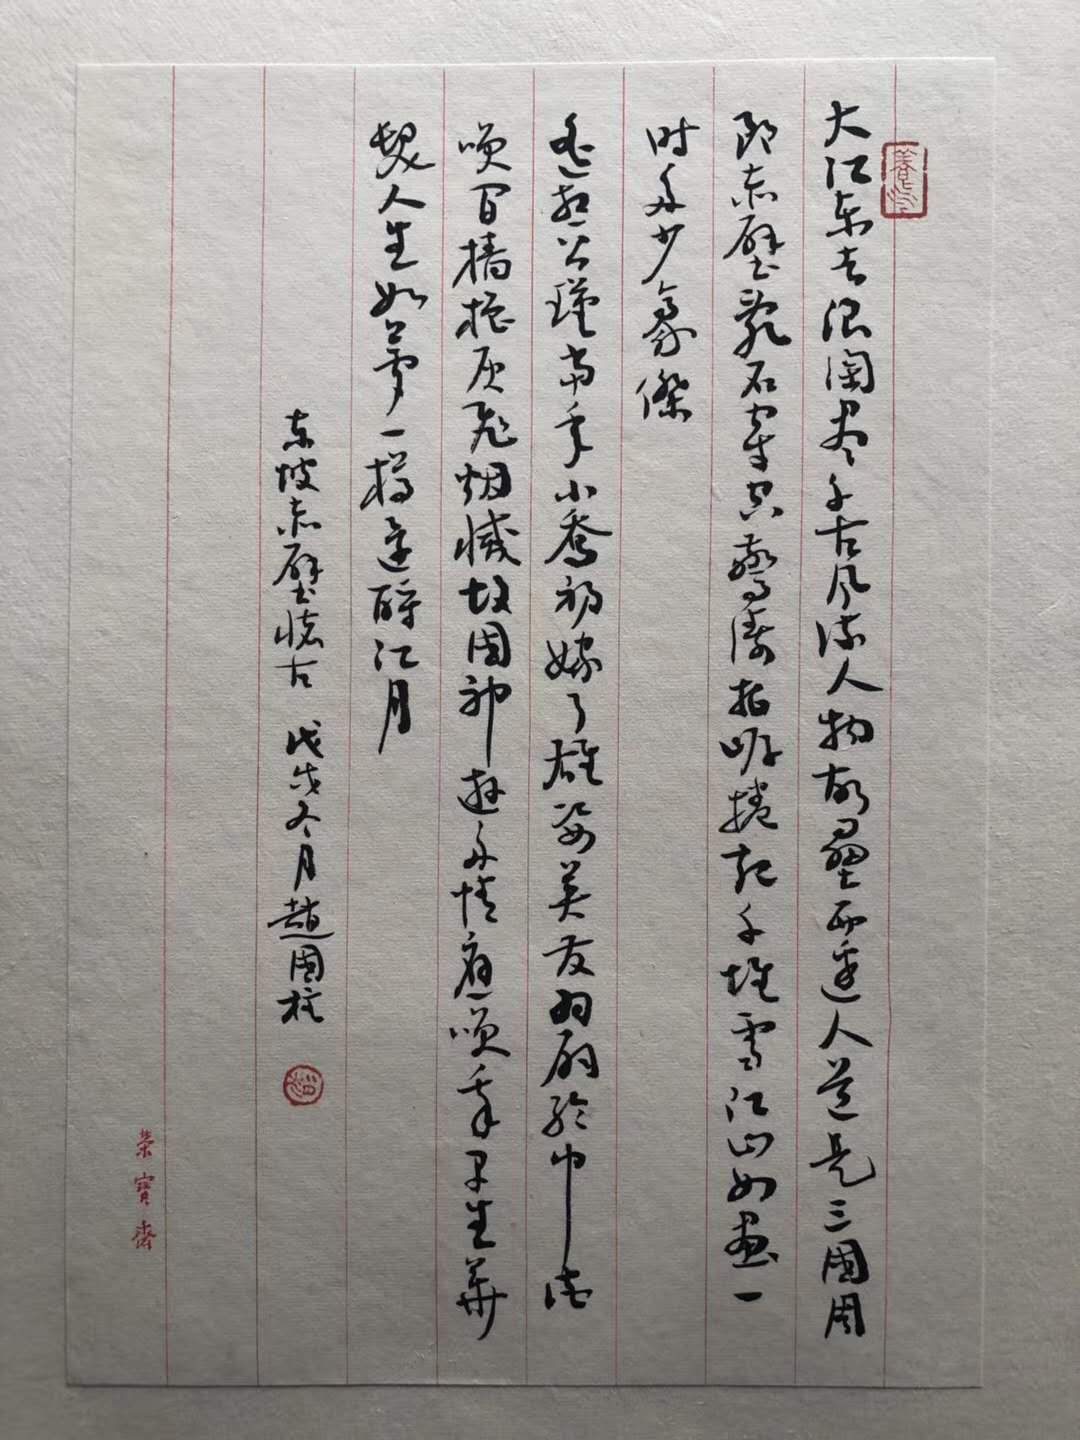 大江东去浪淘尽千古风流人物故垒西边人道是三國周
郎赤壁乱石穿空驚濤拍岸捲起千堆雪江山如画一
时多少豪傑
遥想公瑾當年小喬初嫁了雄姿英发羽扇纶巾谈
笑间樯橹灰飛烟滅故国神遊多情應笑我早生華
髮人生如夢一樽还酹江月
东坡赤壁懷古 戊戌冬月趙國柱
榮寶齋